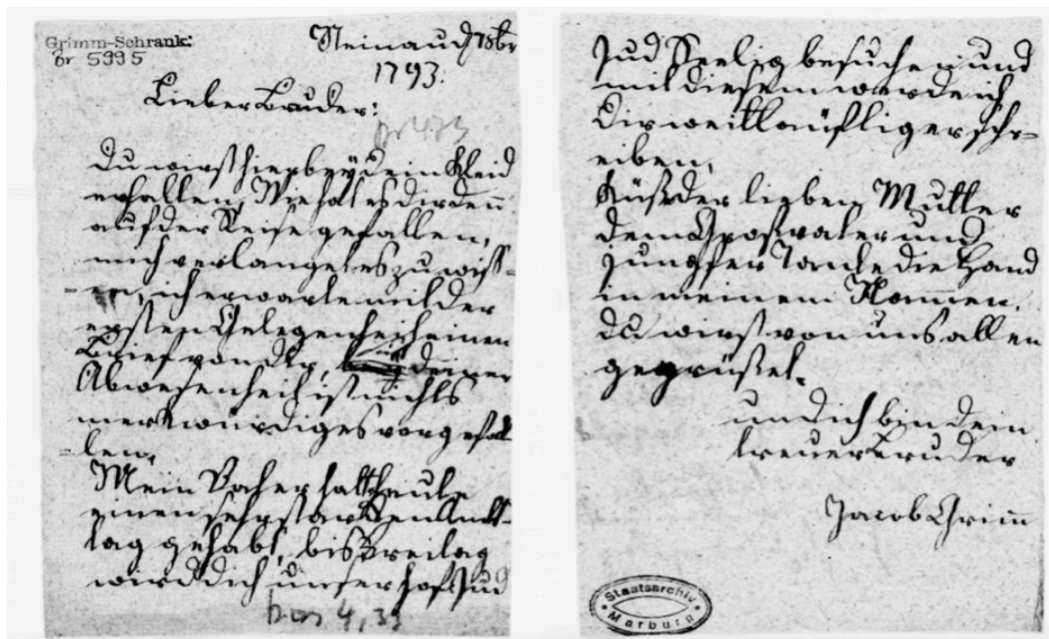 Grimm-Schrank:
Br 5995
Steinau d 7 8br
1793.
Lieber Bruder:
Du wirst hierbey dein Kleid
erhalten, Wie hat es dir denn
auf der Reise gefallen,
mich verlanget es zu wiss-
en, ich erwarte mit der
ersten Gelegenheit einen
Brief von dir, deiner
Abwesenheit ist nichts
merkwürdiges vorgefal
-len,
Mein Vater hatt heute
einen sehr starken Amts-
tag gehabt, bis Freitag
wird dich unser hof Jud
Jud Seelig besuchen und
mit diesem werde ich
dir weitläufliger schr-
eiben.
Küße der lieben Mutter
dem Großvater und
Jungfer Tante die Hand
in meinem Nammen.
du wirst von uns allen
gegrüßet.
und ich bin dein
treuer Bruder
Jacob Grimm
Staatsarchiv
Marburg